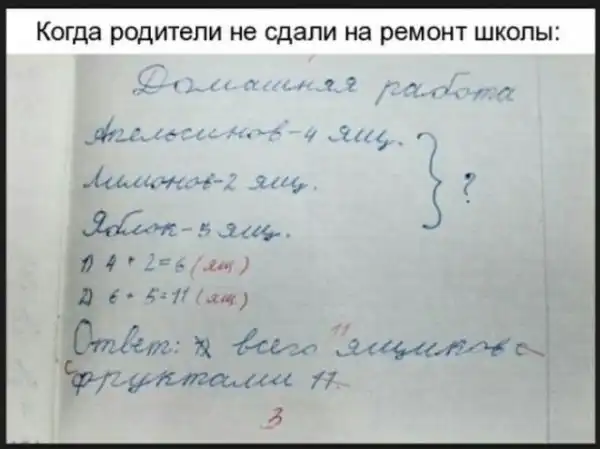 Когда родители не сдали на ремонт школы:
Домашняя работа
Апельсинов-4 ящ.
Лимонов-2 ящ. } ?
Яблок-5 ящ.
1) 4 + 2=6 (ящ)
2) 6 + 5=11 (ящ)
11
Ответ: всего ящиков с
с фруктами 11.
3